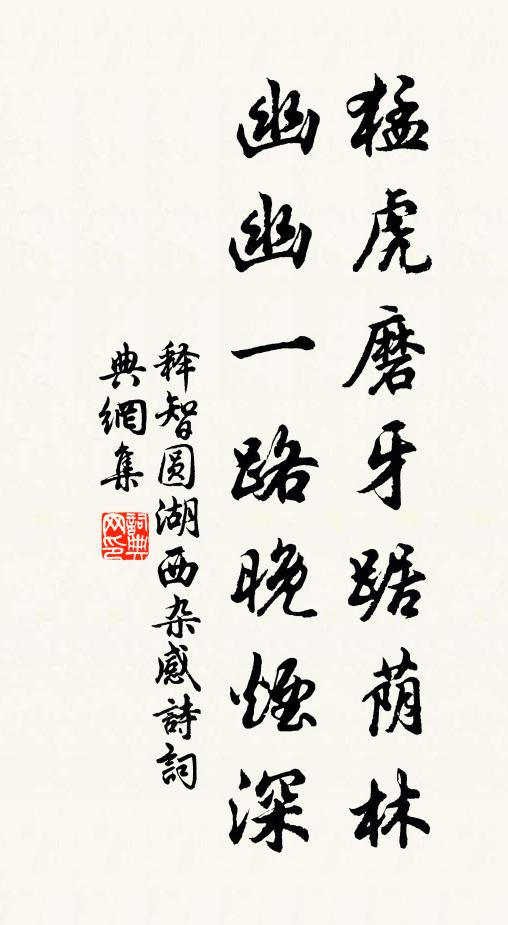 猛虎磨牙踞荫林
幽幽一路晚煙深
释智圆湖西杂感詩詞
典網集
詞典
网印